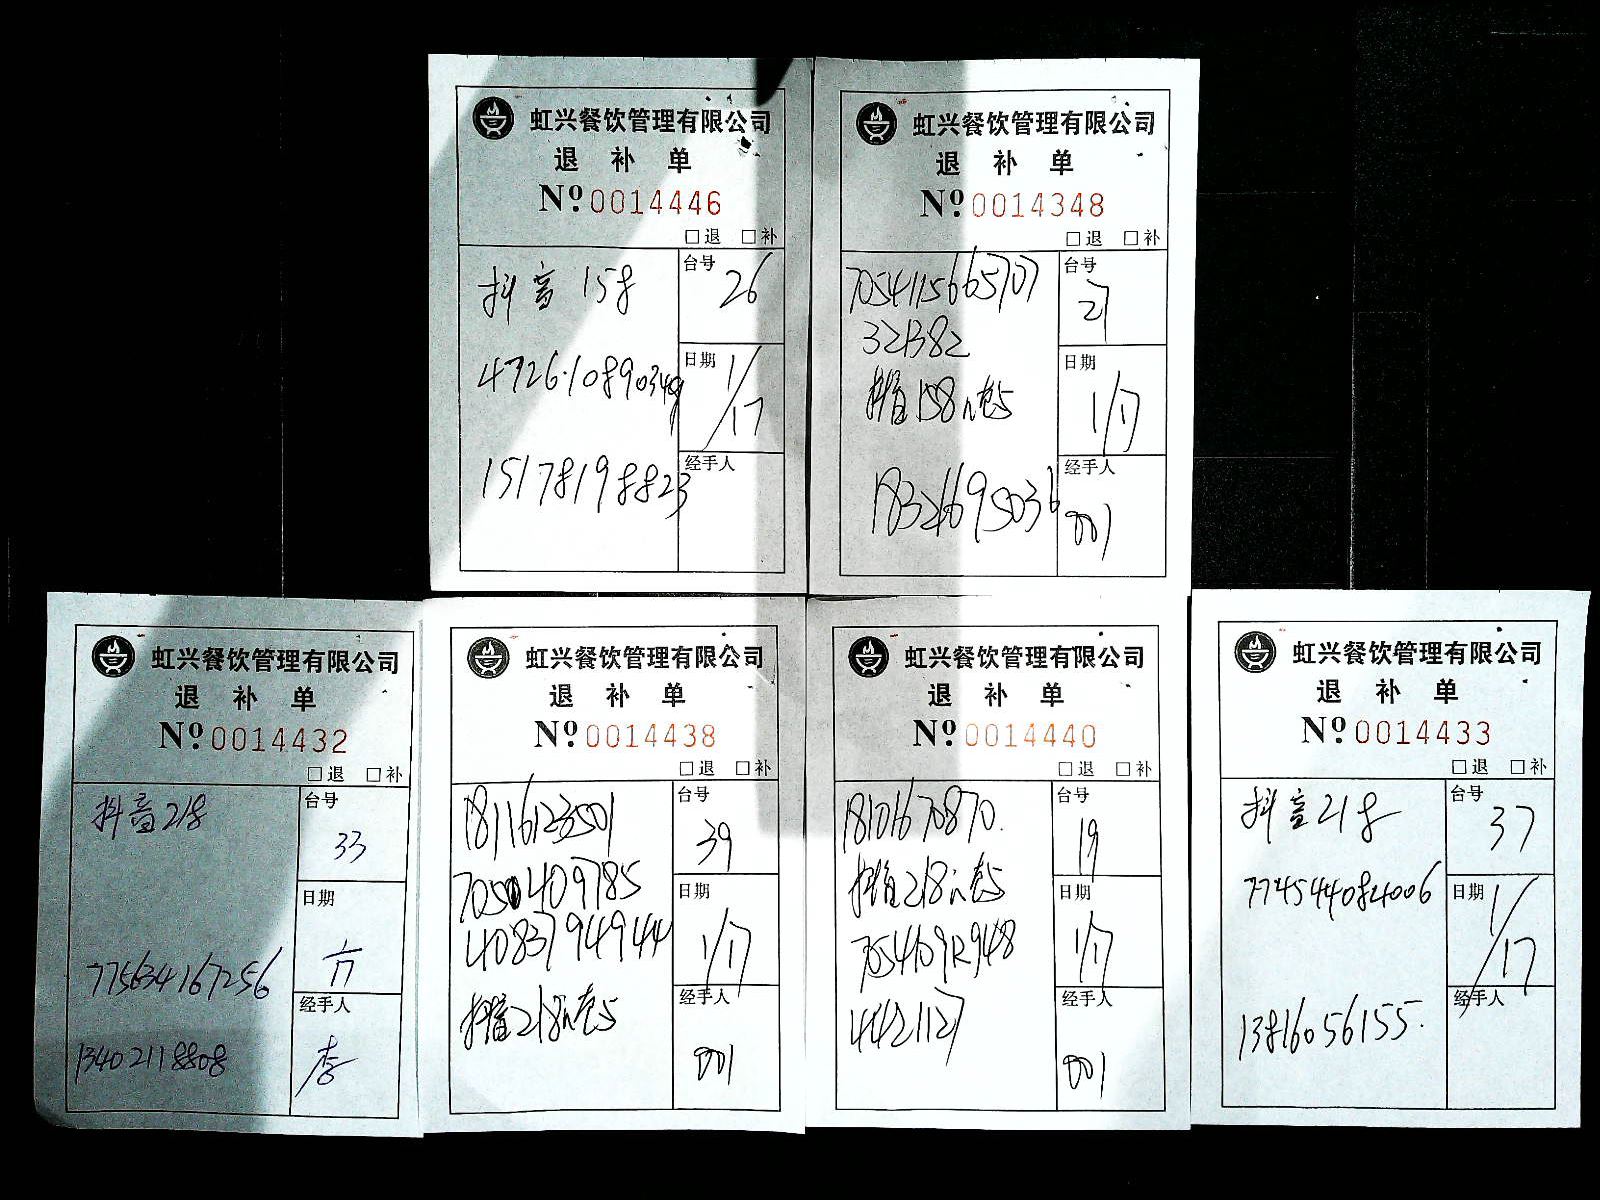 虹兴餐饮管理有限公司
退 补 单
Nº 0014446
□退 □补
抖音 158
台号
26
472610890349
日期
1/17
15178198823
经手人
虹兴餐饮管理有限公司
退 补 单
Nº 0014348
□退 □补
7054115665707
321382
台号
21
抖音158
日期
1/17
18321695036
经手人
001
虹兴餐饮管理有限公司
退 补 单
Nº 0014432
□退 □补
抖音218
台号
33
日期
1/17
775634167256
经手人
13402118808
李
虹兴餐饮管理有限公司
退 补 单
Nº 0014438
□退 □补
台号
39
40837949444
日期
1/17
抖音218
经手人
001
虹兴餐饮管理有限公司
退 补 单
Nº 0014440
□退 □补
18101670870.
台号
19
抖音218
日期
1/17
4421127
经手人
001
虹兴餐饮管理有限公司
退 补 单
Nº 0014433
□退 □补
抖音218
台号
37
774544084006
日期
1/17
13816056155.
经手人